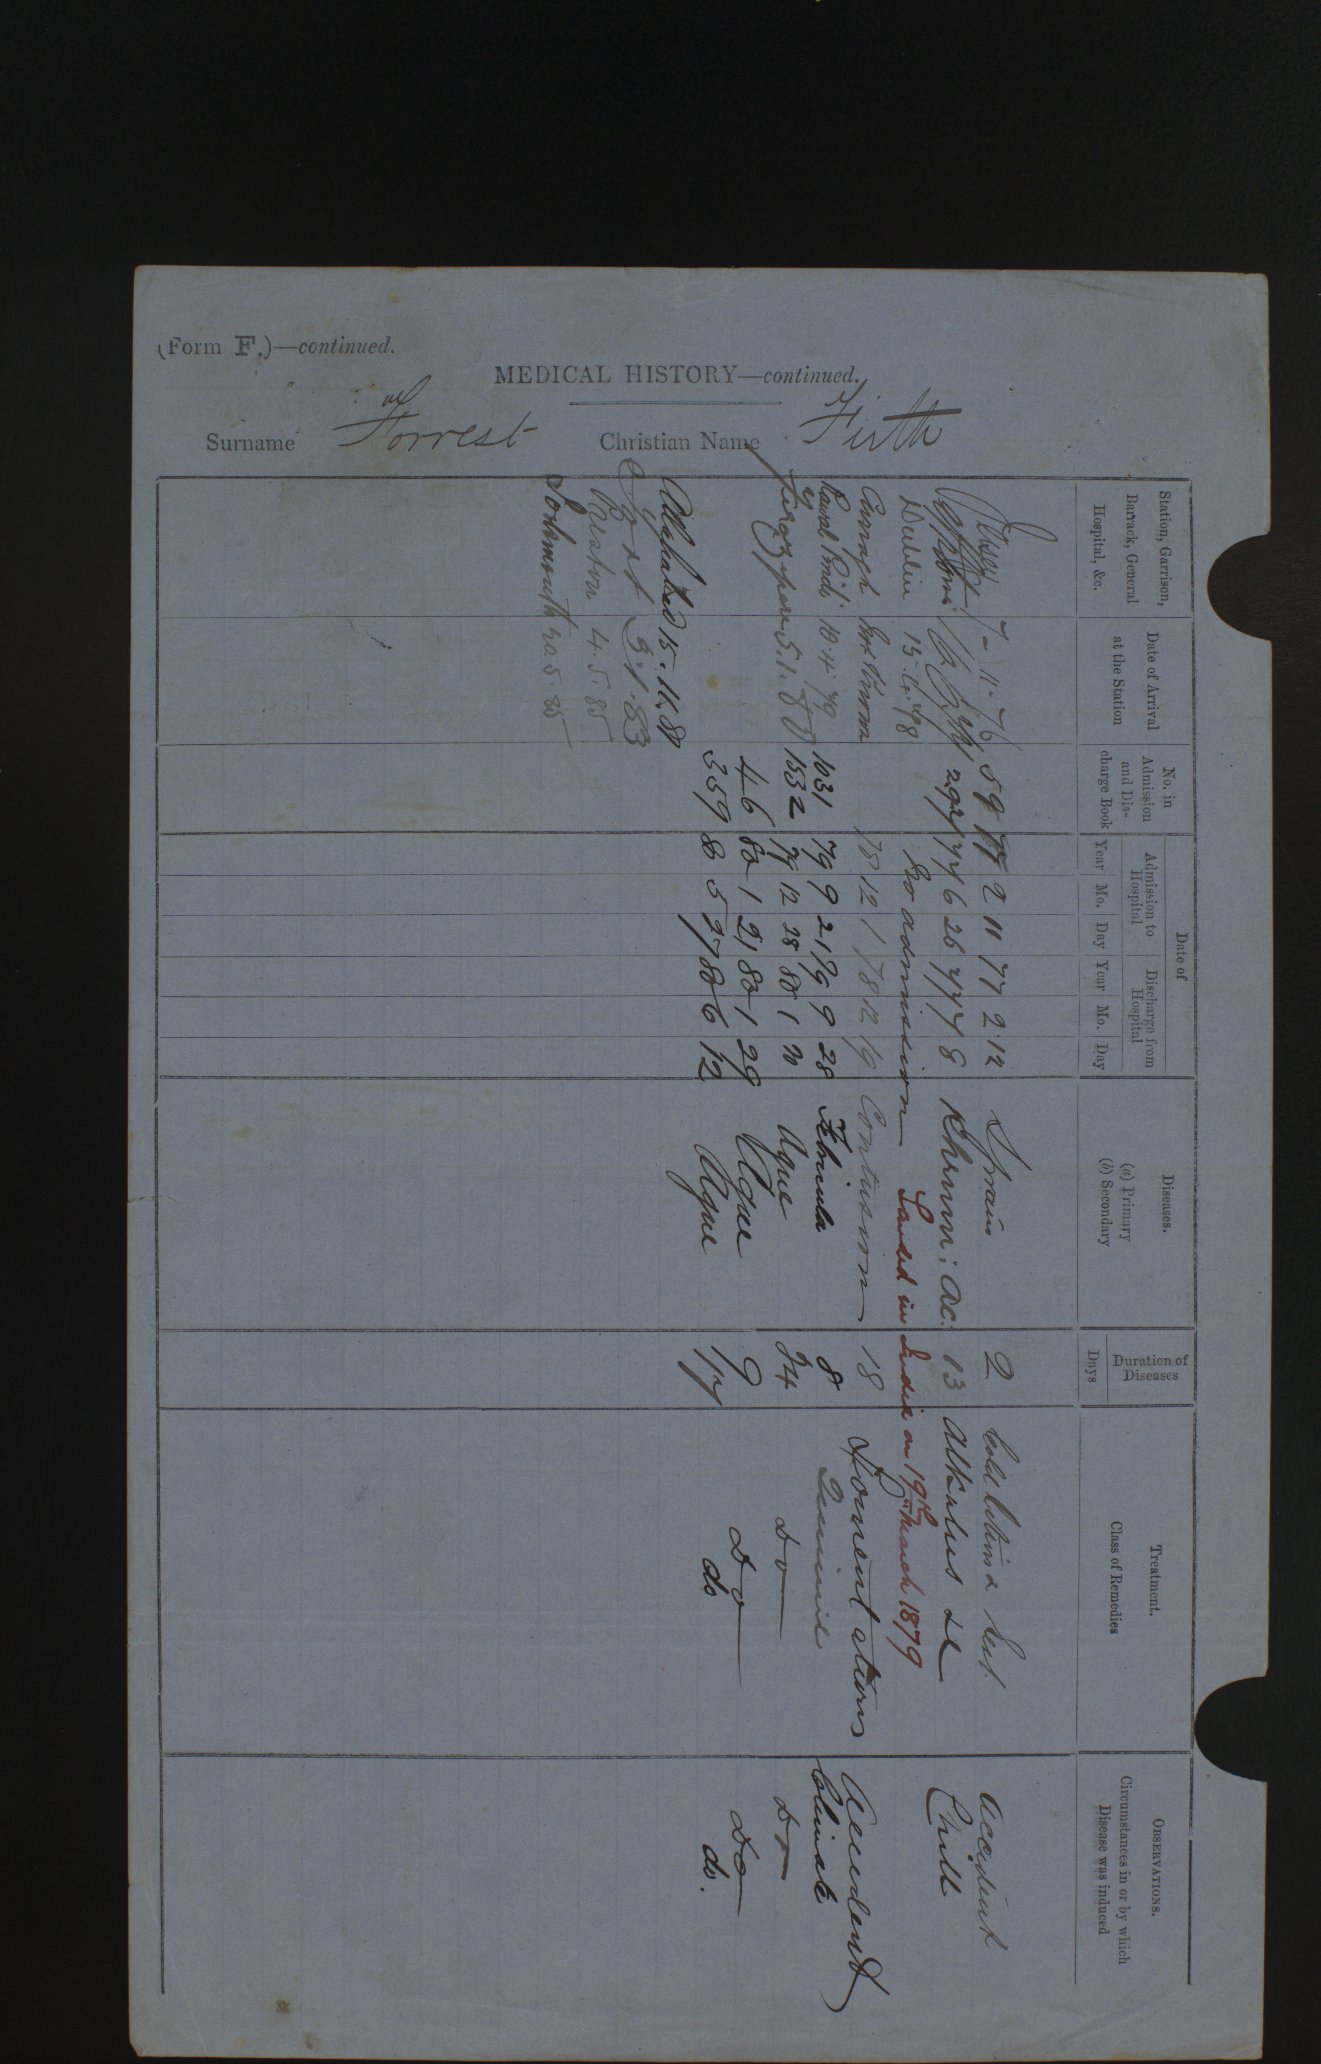 (Form F.)—continued.
MEDICAL HISTORY—continued.
Surname Forrest Christian Name Firth
Station, Garrison, Barrack, General Hospital, &c.
Date of Arrival at the Station
No. in Admission and Discharge Book
Date of
Admission to Hospital
Discharge from Hospital
Year Mo. Day Year Mo. Day
Diseases.
(a) Primary
(b) Secondary
Duration of Diseases
Days
Treatment.
Class of Remedies
OBSERVATIONS.
Circumstances in or by which Disease was induced
Jersey 7-11-76 59 77 2 11 77 2 12 Sprain 2 Cold lotion & Rest. Accident
77 6 26 77 7 8 Rheum: ac. 13 Alkalies &c Chill
Dublin No admission
Landed in India on 19th March 1879
Curragh 78 12 1 78 12 19 Contusion 18 Fomentations Accident
Rawal Pindi 10.4.79 1031 79 9 21 79 9 28 Febricula 8 Quinine Climate
1532 79 12 28 80 1 20 Ague 24 Do Do
5.1.80 46 80 1 21 80 1 29 Ague 9 Do Do
359 80 5 27 80 6 12 Ague 17 do do.
Allahabad 15.11.80
3.1.83
Preston 4.5.85
Portsmouth 20.5.85